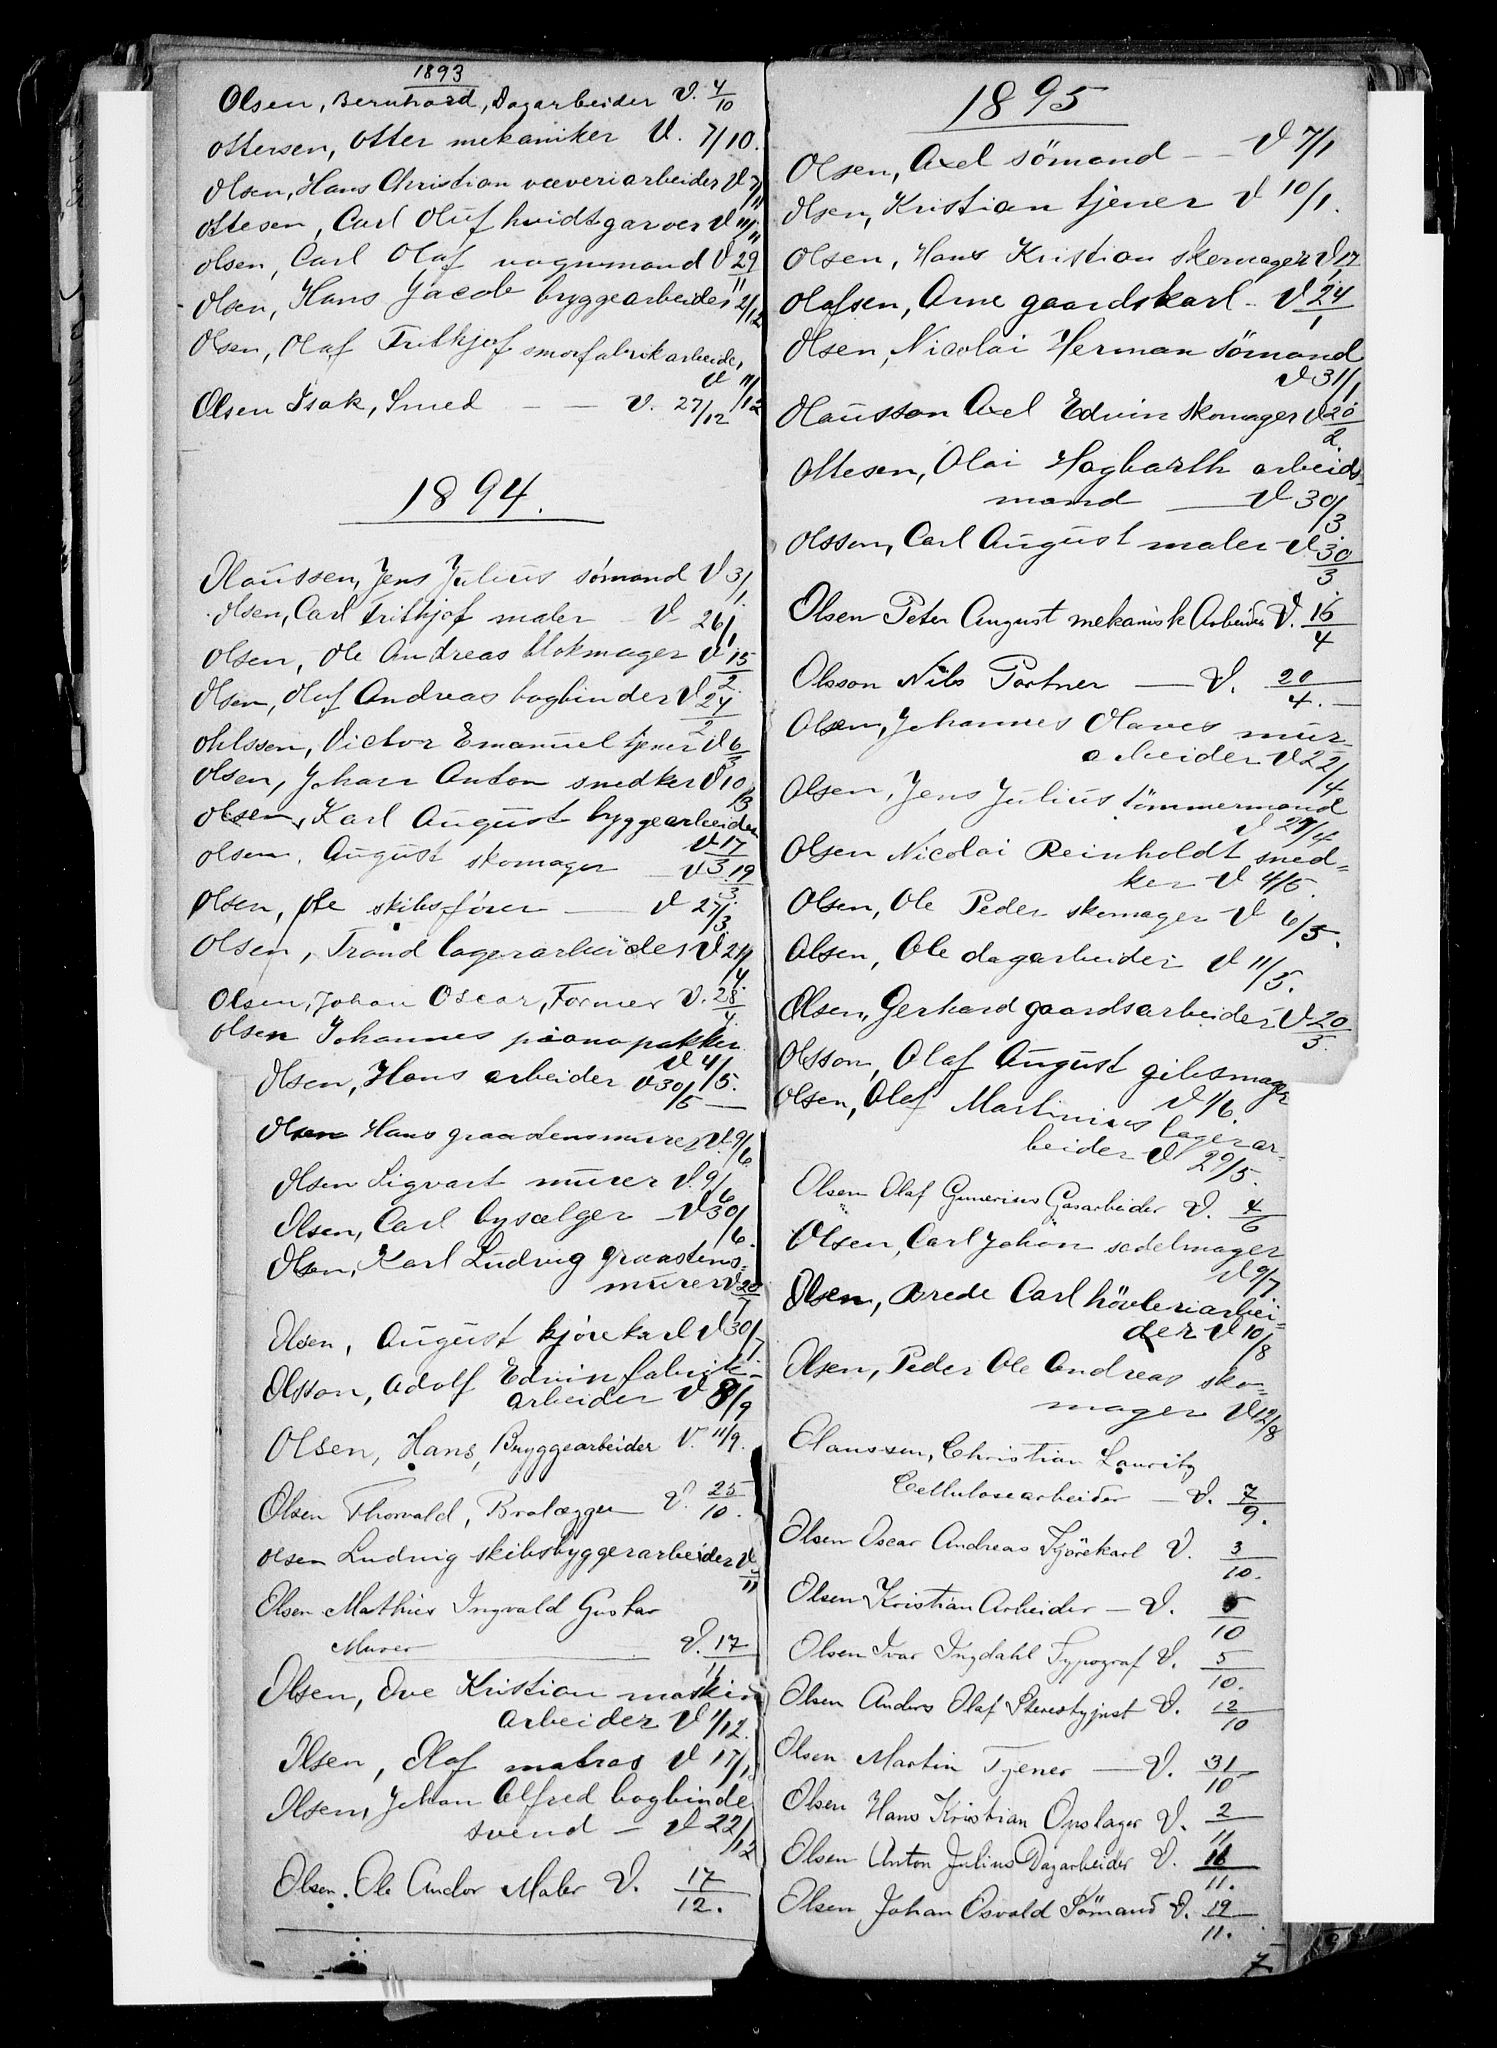 1893
Olsen, Bernhard, Dagarbeider V. 4/10
Ottersen, Otter mekaniker V. 7/10.
Olsen, Hans Christian væveriarbeider V 7/11
Ottesen, Carl Oluf hvidtgarver V 11/11
Olsen, Carl Olaf vognmand V 29/11
Olsen, Hans Jacob bryggearbeider 2/12
Olsen, Olaf Frithjof smørfabrikarbeider
V 11/12
Olsen Isak, Smed — — V. 27/12
1894.
Olaussen, Jens Julius sömand V 3/1.
Olsen, Carl Frithjof maler V 26/1
Olsen, Ole Andreas blokmager V 15/2.
Olsen, Oluf Andreas bogbinder V 24/2
Ohlssen, Victor Emanuel tjener V 6/3
Olsen, Johan Anton snedker V 10/3
Olsen, Karl August byggearbeider
V 17/3
Olsen, August skomager V 19/3.
Olsen, Ole skibsfører — V 27/3.
Olsen, Trand lagerarbeider V 24/4.
Olsen, Johan Oscar, Former V. 28/4.
Olsen Johannes pianopakker
V 4/5.
Olsen, Hans arbeider V 30/5 —
Olsen Hans graastensmurer V. 9/6
Olsen Sigvart murer V. 9/6
Olsen, Carl bysælger — V 30/6.
Olsen, Karl Ludvig graastens-
murer V 20/7
Olsen, August kjörekarl V 30/7.
Olsson, Adolf Edvin fabrik-
arbeider V 8/9
Olsen, Hans, Bryggearbeider V. 11/9.
Olsen Thorvald, Brolægger V. 25/10.
Olsen Ludvig skibsbyggerarbeider V /11
Olsen Mathies Ingvald Gustav
Murer V. 17/11
Olsen, Ove Kristian maskin
arbeider V 1/12.
Olsen, Olaf matros V 17/12
Olsen, Johan Alfred bogbinder
svend — V 22/12
Olsen. Ole Andor Maler V. 17/12.
1895
Olsen, Axel sömand — V 7/1
Olsen, Kristian tjener V 10/1.
Olsen, Hans Kristian skomager V 17/1
Olafsen, Arne gaardskarl — V 24/1
Olsen, Nicolai Herman Sömand
V 31/1
Olausson Axel Edvin Skomager V 20/2.
Ottesen, Olai Hagbarth arbeids-
mand — V 30/3.
Olsson, Carl August maler V 30/3.
Olsen Peter August mekanisk Arbeider V. 16/4
Olsson Nils Portner — V. 20/4. —
Olsen, Johannes Olaves mur-
arbeider V 22/4
Olsen, Jens Julius tömmermand
V 27/4
Olsen Nicolai Reinholdt sned-
ker V 4/5.
Olsen, Ole Peder skomager V 6/5.
Olsen, Ole dagarbeider V 11/5.
Olsen, Gerhard gaardsarbeider V 20/5.
Olsson, Olaf August gibsmager
V 1/6.
Olsen, Olaf Martinius lagerar-
beider V 29/5.
Olsen Olaf Gunerius Gasarbeider V. 4/6
Olsen, Carl Johan sadelmager
V 9/7
Olsen, Arede Carl hövleriarbei-
der V 10/8
Olsen, Peder Ole Andreas sko-
mager V 12/8
Olaussen, Christian Lauritz
Cellulosearbeider — V. 7/9.
Olsen Oscar Andreas Kjörekarl V. 3/10.
Olsen Kristian Arbeider — V. 5/10
Olsen Ivar Ingdahl Typograf V. 5/10.
Olsen Anders Olaf Stereotypist V. 12/10
Olsen Martin Tjener — V. 31/10
Olsen Hans Kristian Opslager V. 2/11
Olsen Anton Julius Dagarbeider V. 16/11.
Olsen Johan Osvald Sömand V. 19/11.
7